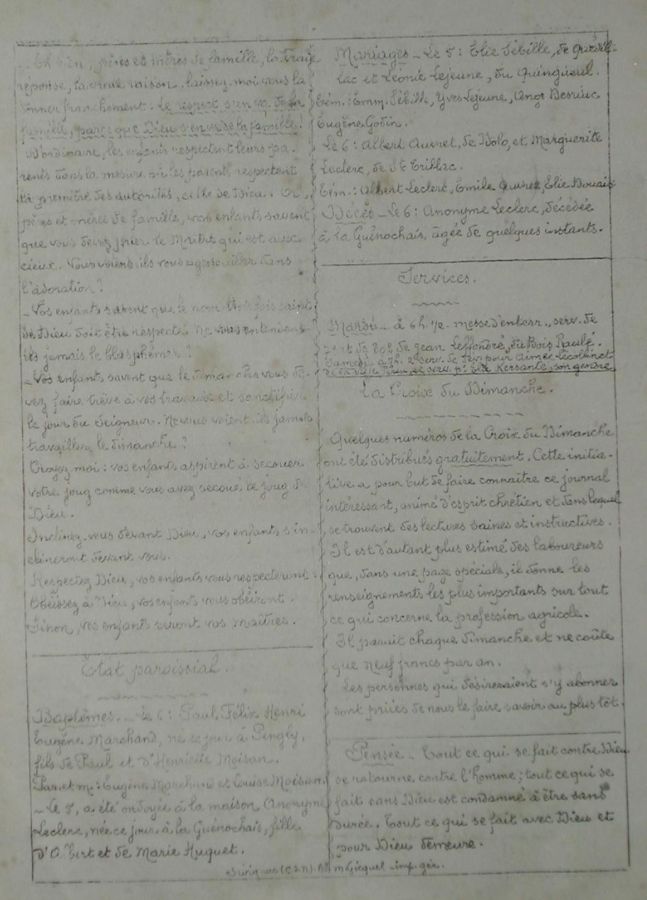 Eh bien, pères et mères de famille, la vraie
réponse, la vraie raison, laissez moi vous la
donner franchement. Le respect s'en va de la
famille, parce que Dieu s'en va de la famille!
D'ordinaire, les enfants respectent leurs pa-
rents dans la mesure où les parents respectent
la première des autorités, celle de Dieu. Or,
pères et mères de famille, vos enfants savent
que vous devez prier le Maître qui est aux
cieux. Vous voient-ils vous agenouiller dans
l'adoration?
_Vos enfants savent que le nom trois fois saint
de Dieu doit être respecté. Ne vous entendent-
ils jamais le blasphémer?
_Vos enfants savent que le dimanche vous de-
vez faire trêve à vos travaux et sanctifier
le jour du Seigneur. Ne vous voient-ils jamais
travailler le dimanche?
Croyez moi: vos enfants aspirent à secouer
votre joug comme vous avez secoué le joug de
Dieu.
Inclinez-vous devant Dieu, vos enfants s'in-
clineront devant vous.
Respectez Dieu, vos enfants vous respecteront.
Obéissez à Dieu, vos enfants vous obéiront.
Sinon, vos enfants seront vos maîtres.
Etat paroissial.
Baptêmes._ Le 6: Paul, Félix Henri
Eugène Marchand, né ce jour à Pengly,
fils de Paul et d'Henriette Moisan.
Par. et m.: Eugène Marchand et Louise Moisan.
_ Le 5, a été ondoyée à la maison Anonyme
Leclerc, née ce jour à la Guénochais, fille
d'Albert et de Marie Huguet.
Mariages _ Le 5: Elie Sébille, de
lac et Léonie Lejeune, du Quinguenel.
Tém.: Emm. Sébille, Yves Lejeune, Ange
Eugène Godin.
Le 6: Albert Auvret, de Dolo, et Marguerite
Leclerc, de St Trillac.
Tém.: Albert Leclerc, Emile Auvret, Elie
Décès _ Le 6: Anonyme Leclerc, décédée
à la Guénochais, âgée de quelques instants.
Services.
Mardi _ à 6h ½ messe d'enterr., serv. de
et de 8e de Jean Leffondré, du Bois Raulé.
Samedi à 7h. 2e serv. de pour Aimée
et serv. pr Elie Kersanté, son gendre
La Croix du Dimanche.
Quelques numéros de la Croix du Dimanche
ont été distribués gratuitement. Cette initia-
tive a pour but de faire connaître ce journal
intéressant, animé d'esprit chrétien et dans lequel
se trouvent des lectures saines et instructives.
Il est d'autant plus estimé des laboureurs
que, dans une page spéciale, il donne les
renseignements les plus importants sur tout
ce qui concerne la profession agricole.
Il paraît chaque dimanche et ne coûte
que neuf francs par an.
Les personnes qui désireraient s'y abonner
sont priées de nous le faire savoir au plus tôt.
Pensée _ Tout ce qui se fait contre Dieu
se retourne contre l'homme; tout ce qui se
fait sans Dieu est condamné à être sans
durée. Tout ce qui se fait avec Dieu et
pour Dieu demeure.
(C.D.N). imp. gér.